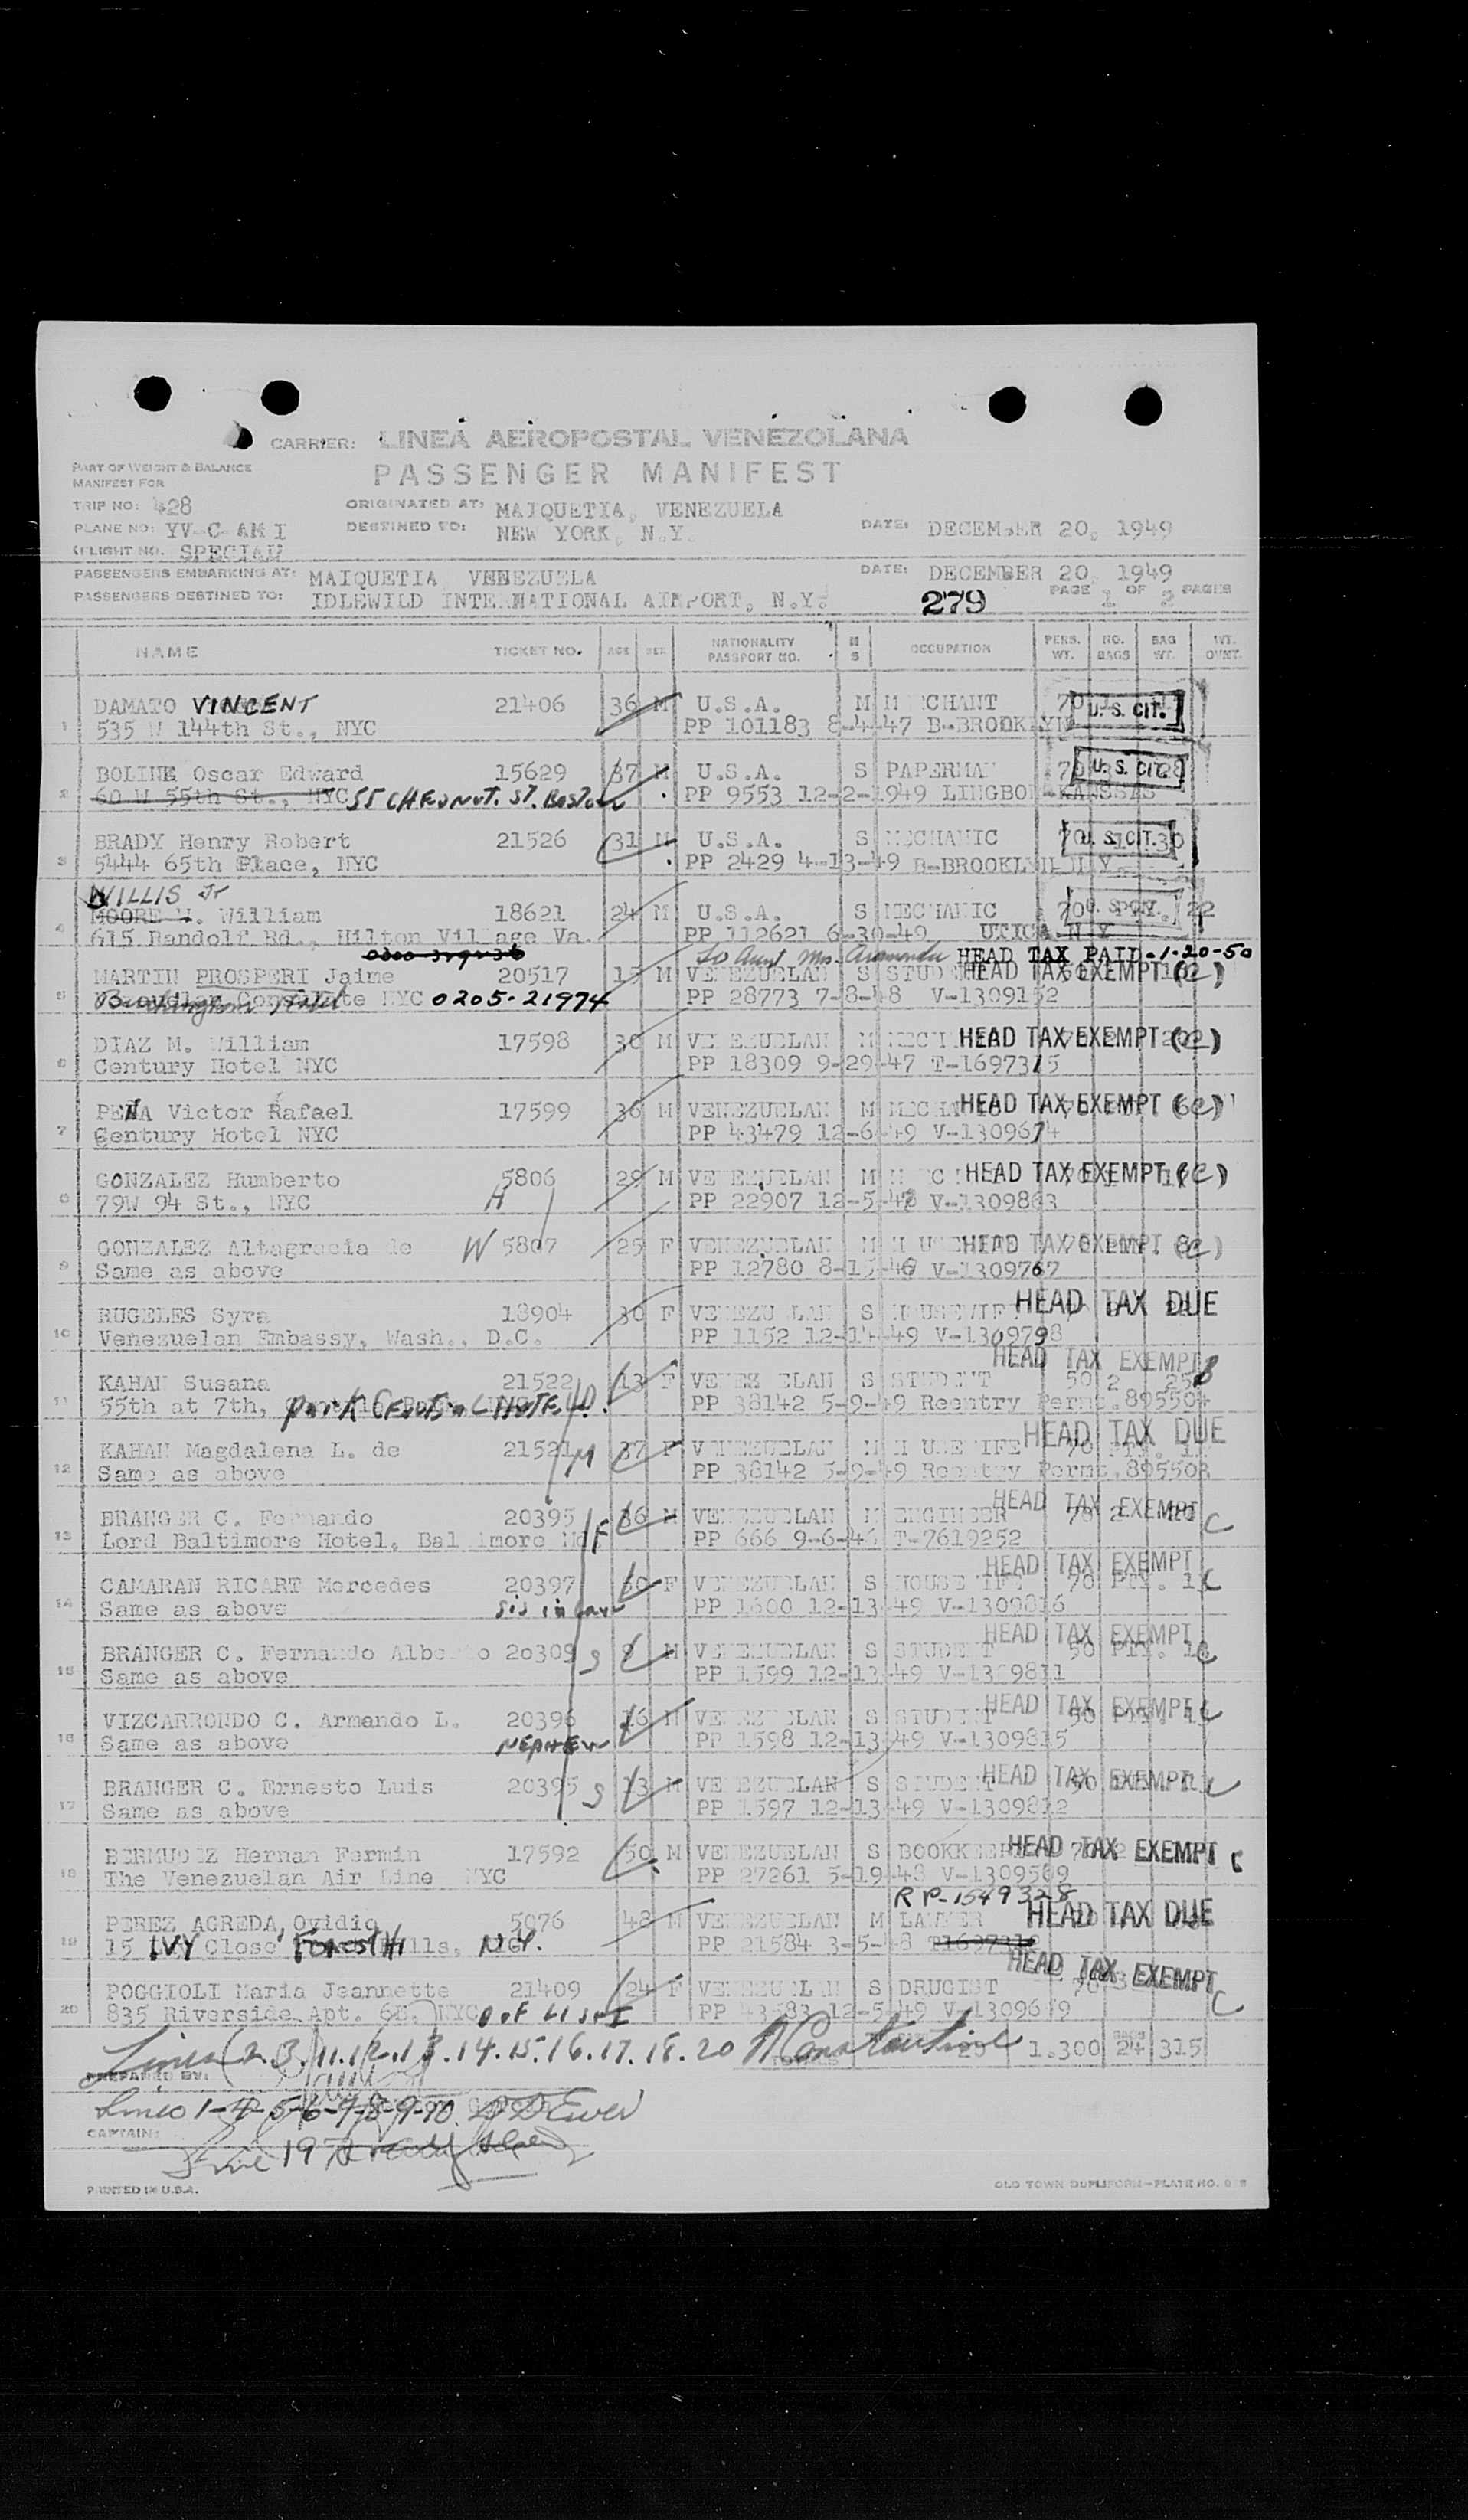 CARRIER: LINEA AEROPOSTAL VENEZOLANA
PART OF WEIGHT & BALANCE
MANIFEST FOR
PASSENGER MANIFEST
TRIP NO: 428
ORIGINATED AT: MAIQUETIA, VENEZUELA
PLANE NO: YV-C-AMI
DESTINED TO: NEW YORK, N.Y.
DATE: DECEMBER 20, 1949
FLIGHT NO. SPECIAL
PASSENGERS EMBARKING AT: MAIQUETIA VENEZUELA
DATE: DECEMBER 20, 1949
PASSENGERS DESTINED TO: IDLEWILD INTERNATIONAL AIRPORT, N.Y.
279
PAGE 1 OF 2 PAGES
NAME TICKET NO. AGE SEX NATIONALITY PASSPORT NO. M S OCCUPATION PERS. WT. NO. BAGS BAG WT. WT. OVNT.
DAMATO VINCENT 21406 36 M U.S.A. M M CHANT 70 U.S. CIT.
1 535 W 144th St., NYC PP 101183 8-4-47 B-BROOKLYN
BOLINE Oscar Edward 15629 37 M U.S.A. S PAPERMAN 70 U.S. CIT.
2 60 W 55th St., NYC 55 CHESNUT. ST. Boston PP 9553 12-2-1949 LINGBO KANSSAS
BRADY Henry Robert 21526 31 M U.S.A. S MECHANIC 70 U.S. CIT. 30
3 5444 65th Place, NYC PP 2429 4-13-49 B-BROOKLYN N Y
WILLIS Jr
MOORE W. William 18621 24 M U.S.A. S MECHANIC 70 22
4 615 Randolf Rd., Hilton Village Va. PP 112621 6-30-49 UTICA N Y
To Aunt Mrs. HEAD TAX PAID-1-20-50
MARTIN PROSPERI Jaime 20517 15 M VENEZUELAN S STUDENT HEAD TAX EXEMPT (C)
5 Consulate NYC 0205-21974 PP 28773 7-8-48 V-1309152
DIAZ M. William 17598 30 M VENEZUELAN M HEAD TAX EXEMPT (C)
6 Century Hotel NYC PP 18309 9-29-47 T-1697315
PEÑA Victor Rafael 17599 36 M VENEZUELAN M HEAD TAX EXEMPT (C)
7 Century Hotel NYC PP 43479 12-6-49 V-1309674
GONZALEZ Humberto 5806 29 M VENEZUELAN M HEAD TAX EXEMPT (C)
8 79W 94 St., NYC H PP 22907 12-5-48 V-1309863
GONZALEZ Altagracia de W 5807 25 F VENEZUELAN M HEAD TAX EXEMPT (C)
9 Same as above PP 12780 V-1309767
RUGELES Syra 18904 30 F VENEZUELAN S HOUSEWIFE HEAD TAX DUE
10 Venezuelan Embassy, Wash., D.C. PP 1152 12-14-49 V-1309798
HEAD TAX EXEMPT B
KAHAN Susana 21522 13 F VENEZUELAN S STUDENT 50 2 25
11 55th at 7th, park Central HOTEL PP 38142 5-9-49 Reentry Permt.895504
HEAD TAX DUE
KAHAN Magdalena L. de 21521 M 37 F VENEZUELAN M HOUSEWIFE
12 Same as above PP 38142 5-9-49 Reentry Permt.895503
HEAD TAX EXEMPT C
BRANGER C. Fernando 20395 36 M VENEZUELAN M ENGINEER 70 2
13 Lord Baltimore Hotel, Baltimore Md F PP 666 9-6-46 T-7619252
HEAD TAX EXEMPT C
CAMARAN RICART Mercedes 20397 F VENEZUELAN S HOUSEWIFE 70
14 Same as above Sis in law PP 1600 12-13-49 V-1309816
HEAD TAX EXEMPT C
BRANGER C. Fernando Alberto 20309 S 9 M VENEZUELAN S STUDENT 50
15 Same as above PP 1599 12-13-49 V-1309811
HEAD TAX EXEMPT C
VIZCARRONDO C. Armando L. 20396 16 M VENEZUELAN S STUDENT 50
16 Same as above NEPHEW PP 1598 12-13-49 V-1309815
HEAD TAX EXEMPT C
BRANGER C. Ernesto Luis 20395 S 13 M VENEZUELAN S STUDENT
17 Same as above PP 1597 12-13-49 V-1309812
BERMUDEZ Hernan Fermin 17592 50 M VENEZUELAN S BOOKKEEPER HEAD TAX EXEMPT C
18 The Venezuelan Air Line NYC PP 27261 5-19-48 V-1309509
RP-1549328
PEREZ AGREDA, Ovidio 5076 48 M VENEZUELAN M LAWYER HEAD TAX DUE
19 15 IVY Close Forest Hills, N.Y. PP 21584 3-5-48
HEAD TAX EXEMPT C
POGGIOLI Maria Jeannette 21409 24 F VENEZUELAN S DRUGIST 70 3
20 835 Riverside Apt. 6D, NYC PP 43583 12-5-49 V-1309619
Lines (2.3.11.12.13.14.15.16.17.18.20 20 1.300 24 315
PREPARED BY:
Lines 1-4-5-6-7-8-9-10
CAPTAIN:
Line 19
PRINTED IN U.S.A. OLD TOWN DUPLIFORM-PLATE NO.